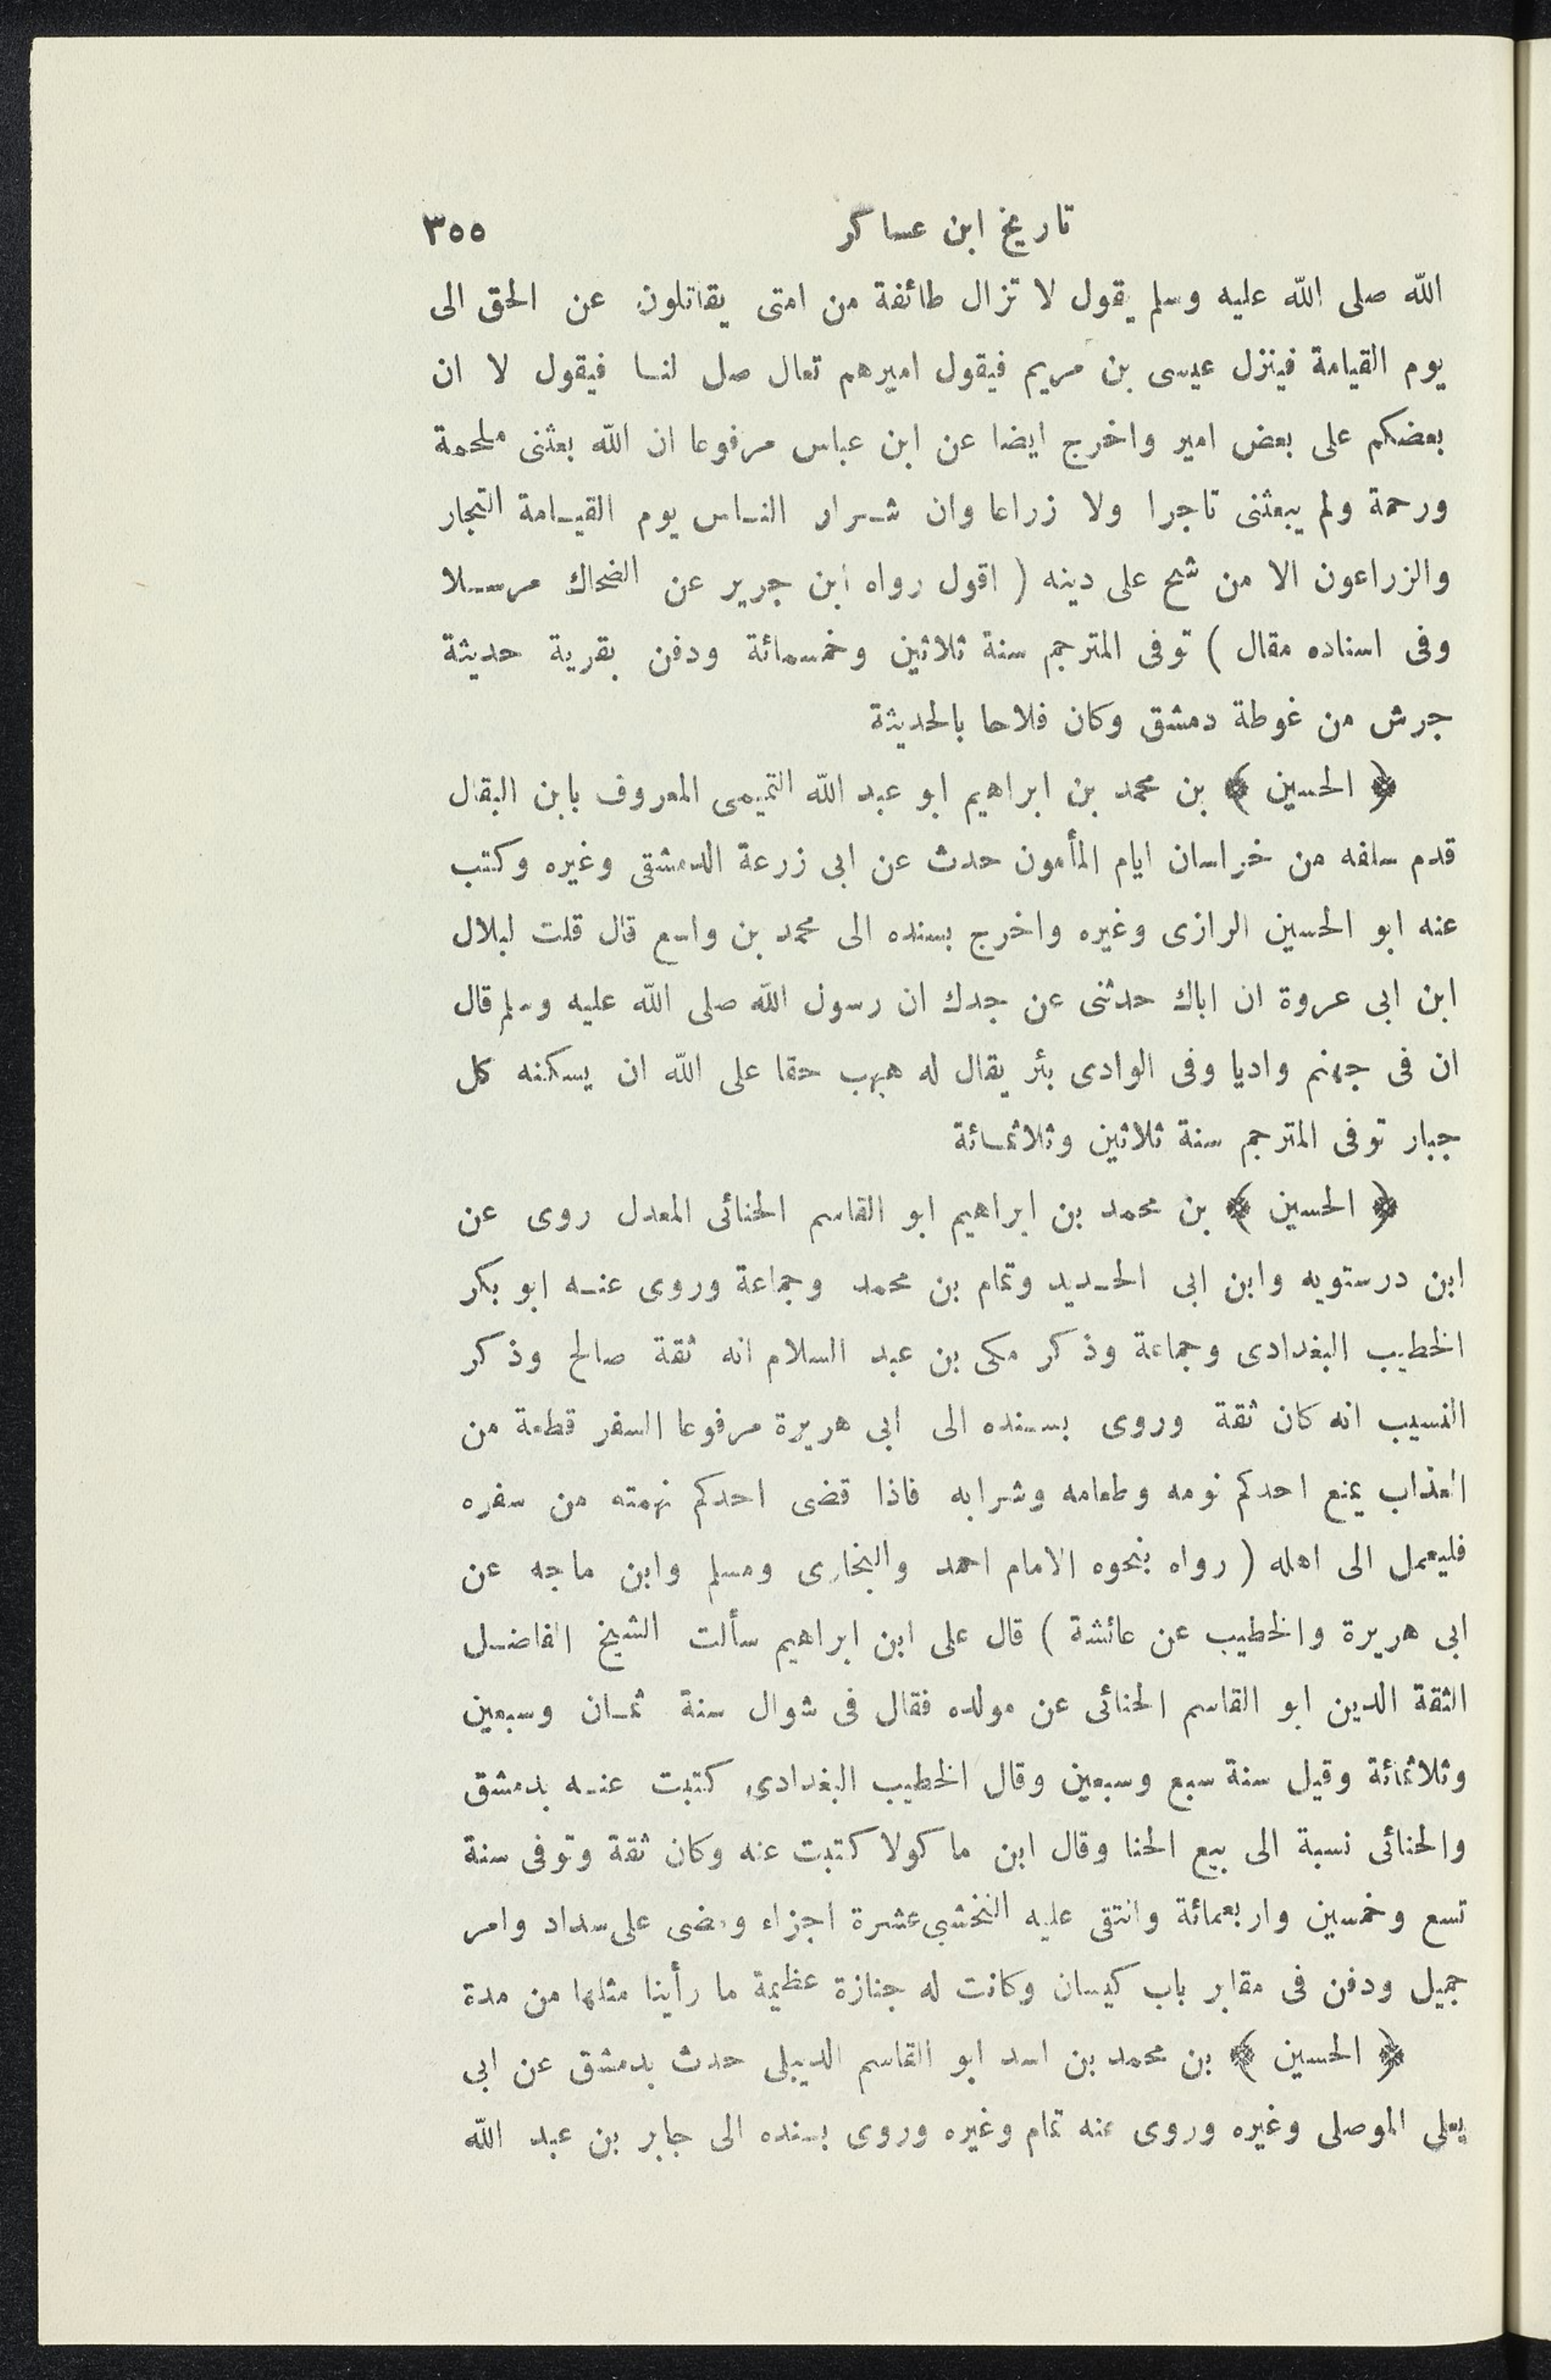 تاريخ ابن عساكر ٣٥٥
الله صلى الله عليه وسلم يقول لا تزال طائفة من امتى يقاتلون عن الحق الى
يوم القيامة فينزل عيسى بن مريم فيقول اميرهم تعال صل لنا فيقول لا ان
بعضكم على بعض امير واخرج ايضا عن ابن عباس مرفوعا ان الله بعثنى ملحمة
ورحمة ولم يبعثنى تاجرا ولا زراعا وان شرار الناس يوم القيامة التجار
والزراعون الا من شح على دينه ( اقول رواه ابن جرير عن الضحاك مرسلا
وفى اسناده مقال ) توفى المترجم سنة ثلاثين وخمسمائة ودفن بقرية حديثة
جرش من غوطة دمشق وكان فلاحا بالحديثة
﴿ الحسين ﴾ بن محمد بن ابراهيم ابو عبد الله التميمى المعروف بابن البقال
قدم سلفه من خراسان ايام المأمون حدث عن ابى زرعة الدمشقى وغيره وكتب
عنه ابو الحسين الرازى وغيره واخرج بسنده الى محمد بن واسع قال قلت لبلال
ابن ابى عروة ان اباك حدثنى عن جدك ان رسول الله صلى الله عليه وسلم قال
ان فى جهنم واديا وفى الوادى بئر يقال له هبهب حقا على الله ان يسكنه كل
جبار توفى المترجم سنة ثلاثين وثلاثمائة
﴿ الحسين ﴾ بن محمد بن ابراهيم ابو القاسم الحنائى المعدل روى عن
ابن درستويه وابن ابى الحديد وتمام بن محمد وجماعة وروى عنه ابو بكر
الخطيب البغدادى وجماعة وذكر مكى بن عبد السلام انه ثقة صالح وذكر
النسيب انه كان ثقة وروى بسنده الى ابى هريرة مرفوعا السفر قطعة من
العذاب يمنع احدكم نومه وطعامه وشرابه فاذا قضى احدكم نهمته من سفره
فليعمل الى اهله ( رواه بنحوه الامام احمد والبخارى ومسلم وابن ماجه عن
ابى هريرة والخطيب عن عائشة ) قال على ابن ابراهيم سألت الشيخ الفاضل
الثقة الدين ابو القاسم الحنائى عن مولده فقال فى شوال سنة ثمان وسبعين
وثلاثمائة وقيل سنة سبع وسبعين وقال الخطيب البغدادى كتبت عنه بدمشق
والحنائى نسبة الى بيع الحنا وقال ابن ماكولا كتبت عنه وكان ثقة وتوفى سنة
تسع وخمسين واربعمائة وانتقى عليه النخشبى عشرة اجزاء ومضى على سداد وامر
جميل ودفن فى مقابر باب كيسان وكانت له جنازة عظيمة ما رأينا مثلها من مدة
﴿ الحسين ﴾ بن محمد بن اسد ابو القاسم الديبلى حدث بدمشق عن ابى
يعلى الموصلى وغيره وروى عنه تمام وغيره وروى بسنده الى جابر بن عبد الله